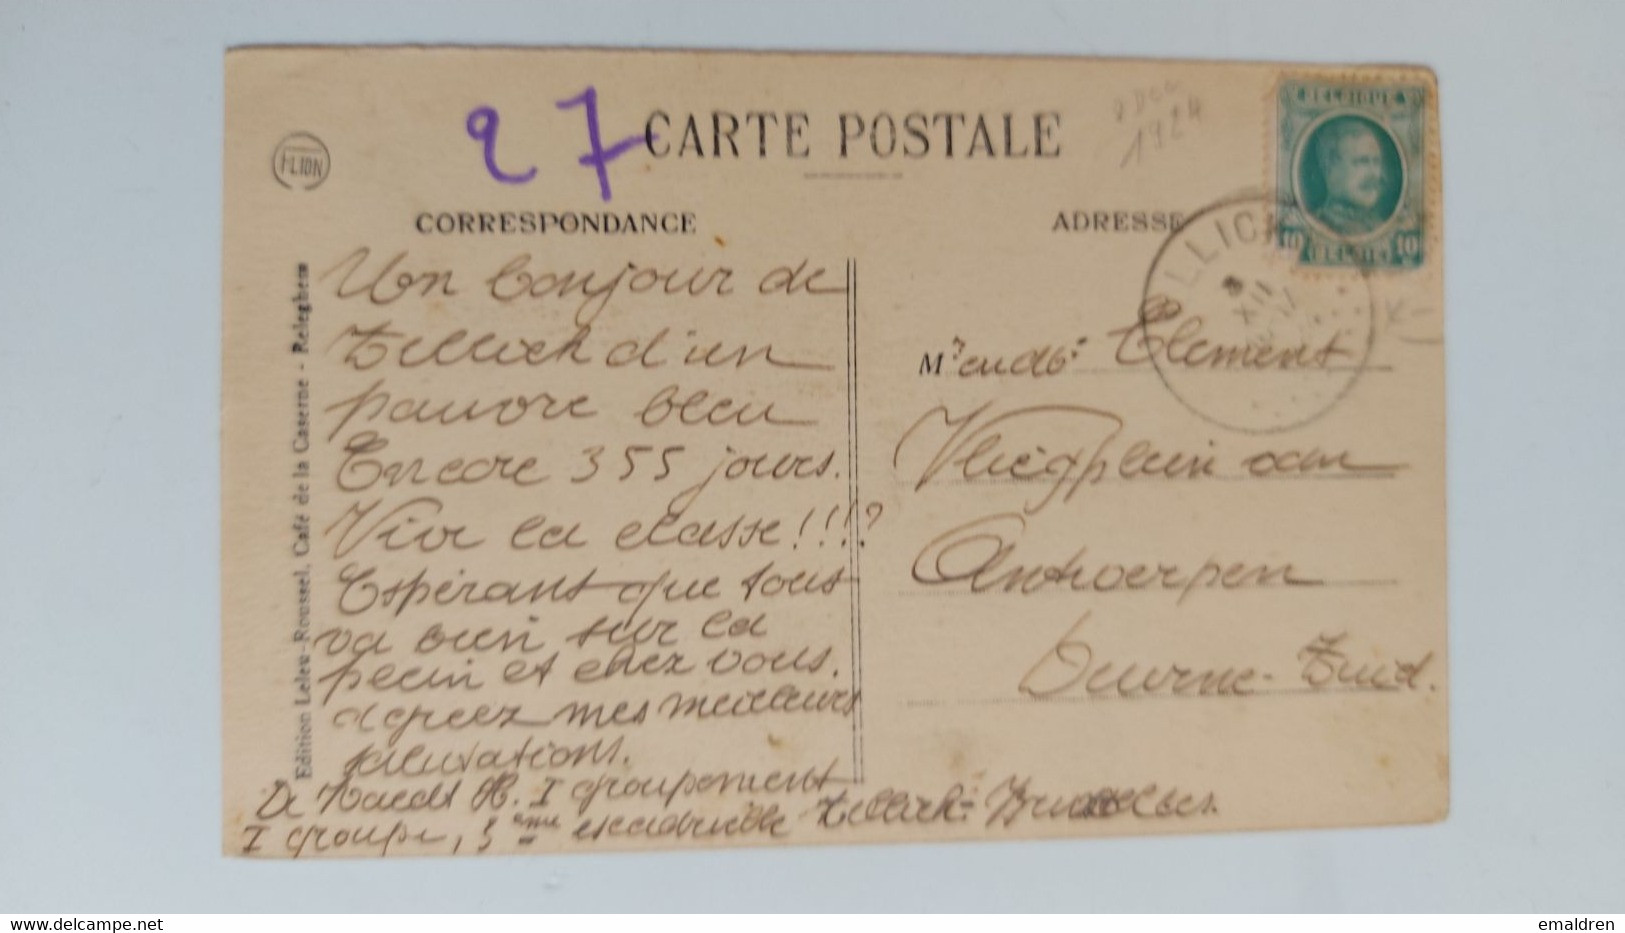 27
CARTE POSTALE
CORRESPONDANCE
ADRESSE
1924
BELGIQUE
10 10
LLICK
8
XII
Edition Leleu-Roussel, Café de la Caserne - Releghem
Un bonjour de
Zellick d'un
pauvre bleu
Encore 355 jours.
Vive la classe!!!?
Espérant que tous
va bien sur la
plein et chez vous.
agreez mes meilleurs
salutations.
De H. I groupement
I groupe, 3ème escadrille Zellick-Bruxelles.
Mr Clement
Vliegplein van
Antwerpen
Deurne-Zuid.
www.delcampe.net
emaldren